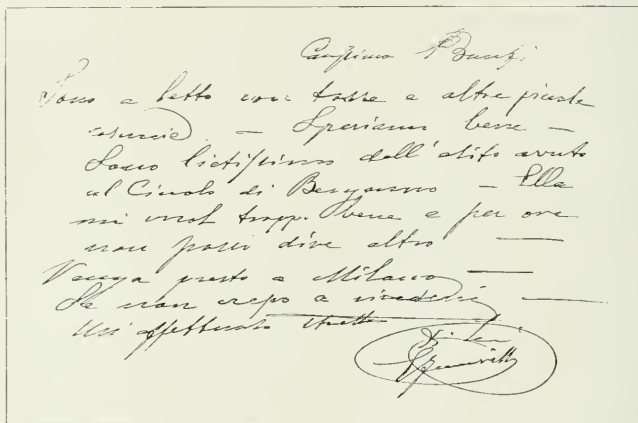 Carissimo
Sono a letto con tosse e altre piccole
cosuccie — Speriamo bene —
Sono lietissimo dell'esito avuto
al Circolo di Bergamo — Ella
mi vuol troppo bene e per ora
non posso dire altro —
Venga presto a Milano —
Se non crepo a rivederci —
Un affettuosa stretta